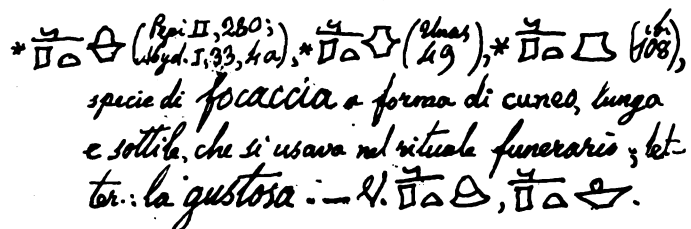 * (Pepi II, 280; Abyd. I, 33, 4a), * (Unas 49), * (ibi 108),
specie di focaccia a forma di cuneo, lunga
e sottile, che si usava nel rituale funerario; let-
ter.: la gustosa :— V. , .